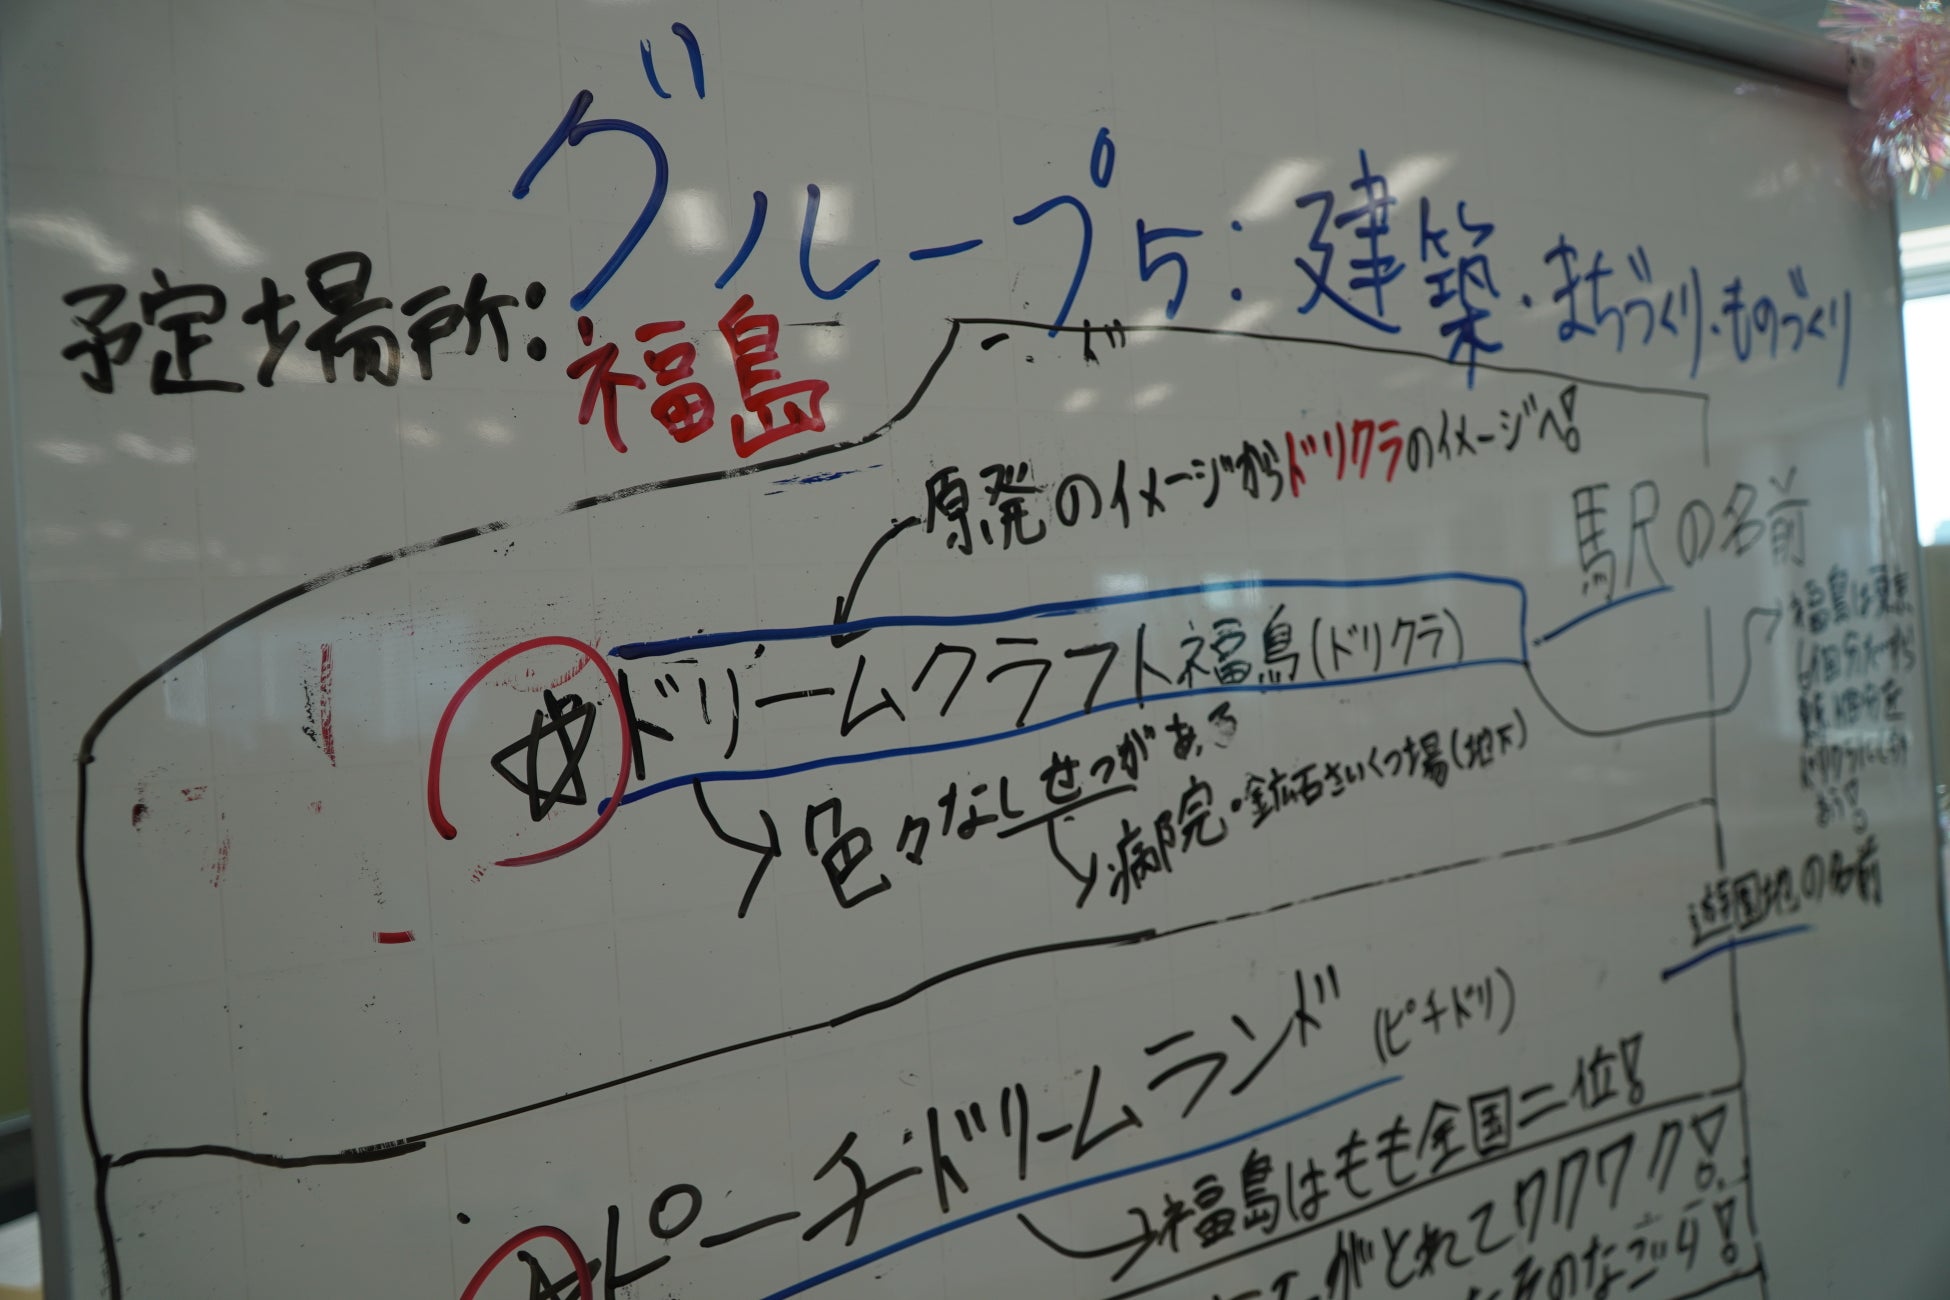 グループ5:建築・まちづくり・ものづくり
予定場所:福島
原発のイメージからドリクラのイメージへ!
駅の名前
☆ドリームクラフト福島(ドリクラ)
福島は東京
色々なしせつがある
病院・鉱石さいくつ場(地下)
遊園地の名前
ピーチドリームランド(ピチドリ)
福島はもも全国二位!
がとれてワクワク!